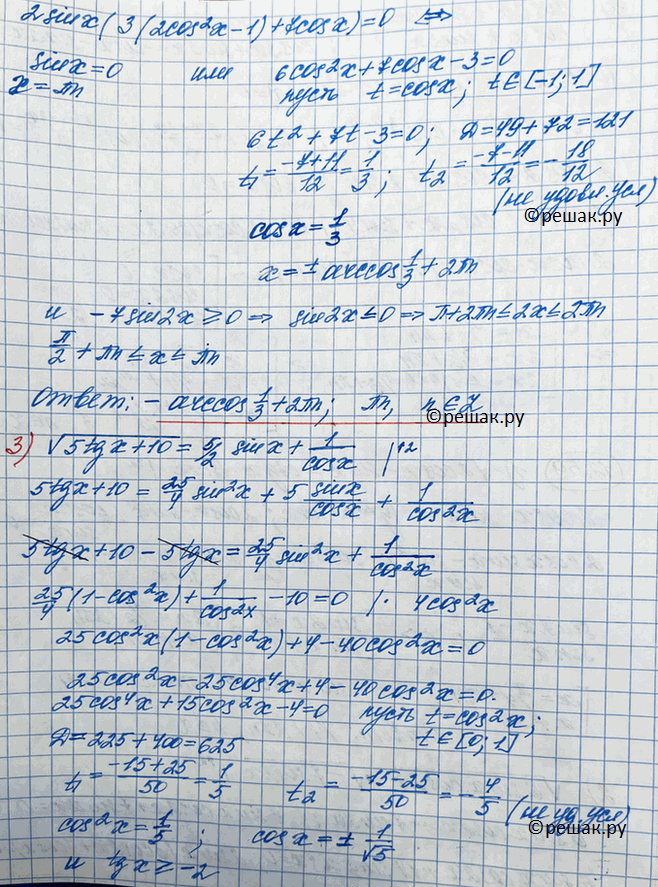 2sinx(3(2cos²x-1)+7cosx)=0 ⇔
sinx=0 или 6cos²x+7cosx-3=0
x=πn пусть t=cosx; t∈[-1;1]
6t²+7t-3=0; D=49+72=121
t₁=(-7+11)/12=1/3; t₂=(-7-11)/12=-18/12
(не удовл. усл)
©решак.ру
cosx=1/3
x=±arccos 1/3+2πn
и -7sin2x≥0 ⇒ sin2x≤0 ⇒ π+2πn≤2x≤2πn
π/2+πn≤x≤πn
Ответ: -arccos 1/3+2πn; πn, n∈Z
©решак.ру
3) √(5tgx+10)=5/2 sinx+1/cosx |^2
5tgx+10=25/4 sin²x+5 sinx/cosx+1/cos²x
5tgx+10-5tgx=25/4 sin²x+1/cos²x
25/4(1-cos²x)+1/cos²x-10=0 |· 4cos²x
25cos²x(1-cos²x)+4-40cos²x=0
25cos²x-25cos⁴x+4-40cos²x=0.
25cos⁴x+15cos²x-4=0 пусть t=cos²x;
D=225+400=625 t∈[0;1]
t₁=(-15+25)/50=1/5 t₂=(-15-25)/50=-4/5 (не уд. усл)
©решак.ру
cos²x=1/5; cosx=±1/√5
и tgx≥-2